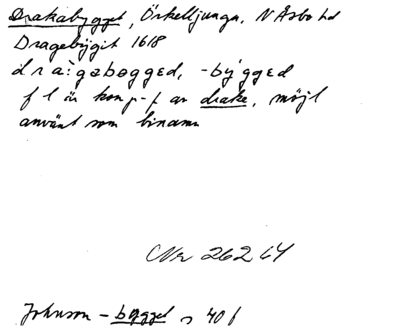 Drakabygget, Örkelljunga, N Åsbo hd
Dragebÿgit 1618
dra:̀gabøgged, -bý́gged
f l är komp-f av drake, möjl
använt som binamn
Nr 262 64
Johnson - bygget s 40 f